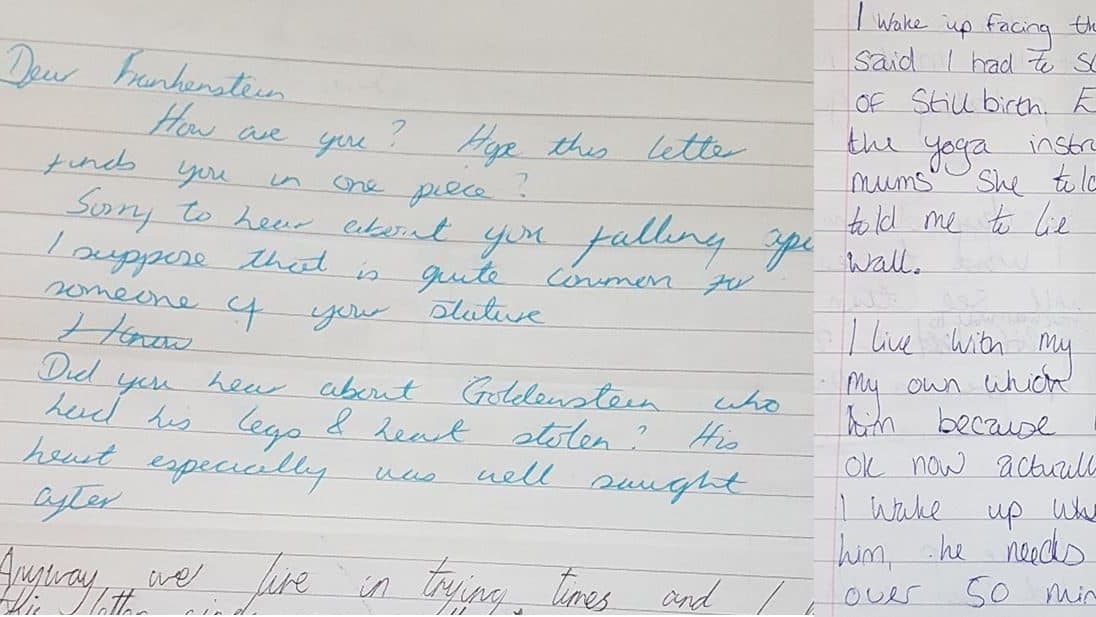 Dear Frankenstein
How are you? Hope this letter
finds you in one piece?
Sorry to hear about you falling
I suppose that is quite common for
someone of your stature
I know
Did you hear about Goldenstein who
had his legs & heart stolen? His
heart especially was well saught
after
Anyway we live in trying times and I
this letter
I wake up facing
said I had to
of Still birth.
the yoga
mums" She
told me to lie
wall.
I live with my
my own which
him because
ok now
I wake up
him, he needs
over 50